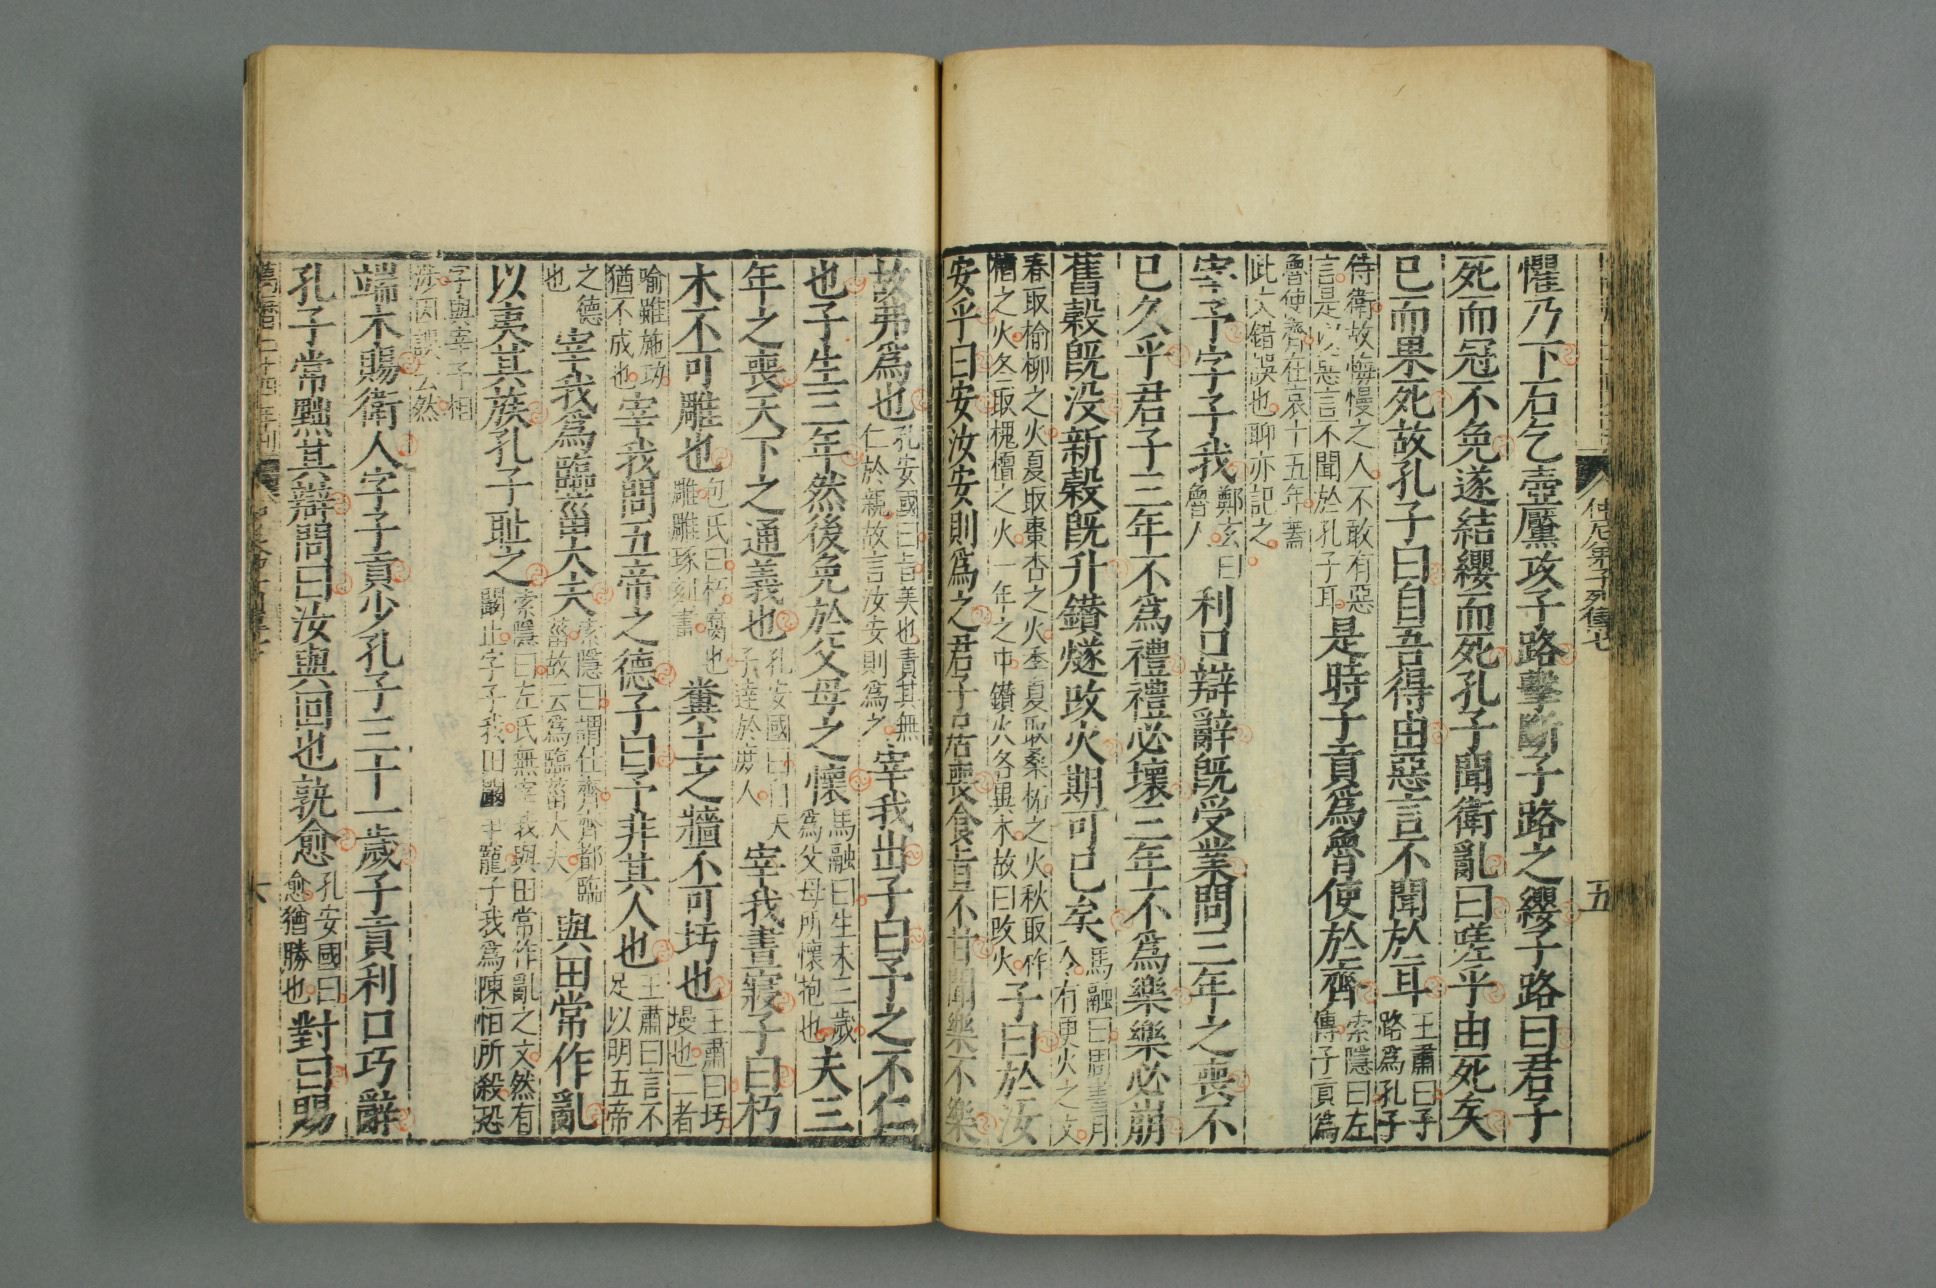 仲尼弟子列傳七
五
懼乃下石乞壺黶攻子路擊斷子路之纓子路曰君子
死而冠不免遂結纓而死孔子聞衛亂曰嗟乎由死矣
已而果死故孔子曰自吾得由惡言不聞於耳王肅曰子路為孔子
侍衛故悔慢之人不敢有惡言是以惡言不聞於孔子耳是時子貢爲魯使於齊索隱曰左傳子貢爲
魯使齊在哀十五年蓋此文錯誤也聊亦記之
宰予字子我鄭玄曰魯人利口辯辭旣受業問三年之喪不
已久乎君子三年不爲禮禮必壞三年不爲樂樂必崩
舊穀旣没新穀旣升鑽燧改火期可已矣馬融曰周書月令有更火之文
春取榆柳之火夏取棗杏之火季夏取桑柘之火秋取柞楢之火冬取槐檀之火一年之中鑽火各異木故曰改火子曰於汝
安乎曰安汝安則爲之君子居喪食旨不甘聞樂不樂
故弗爲也孔安國曰旨美也責其無仁於親故言汝安則爲之宰我出子曰予之不仁
也子生三年然後免於父母之懷馬融曰生未三歲爲父母所懷抱也夫三
年之喪天下之通義也孔安國曰自天子達於庶人宰我晝寢子曰朽
木不可雕也包氏曰朽腐也雕雕琢刻畫糞土之牆不可圬也王肅曰圬墁也二者
喻雖施功猶不成也宰我問五帝之德子曰予非其人也王肅曰言不足以明五帝
之德也宰我爲臨菑大夫索隱曰謂仕齊齊都臨菑故云爲臨菑大夫與田常作亂
以夷其族孔子恥之索隱曰左氏無宰我與田常作亂之文然有闞止字子我田闞爭寵子我爲陳恒所殺恐
字與宰予相涉因誤云然
端木賜衛人字子貢少孔子三十一歲子貢利口巧辭
孔子常黜其辯問曰汝與回也孰愈孔安國曰愈猶勝也對曰賜
六